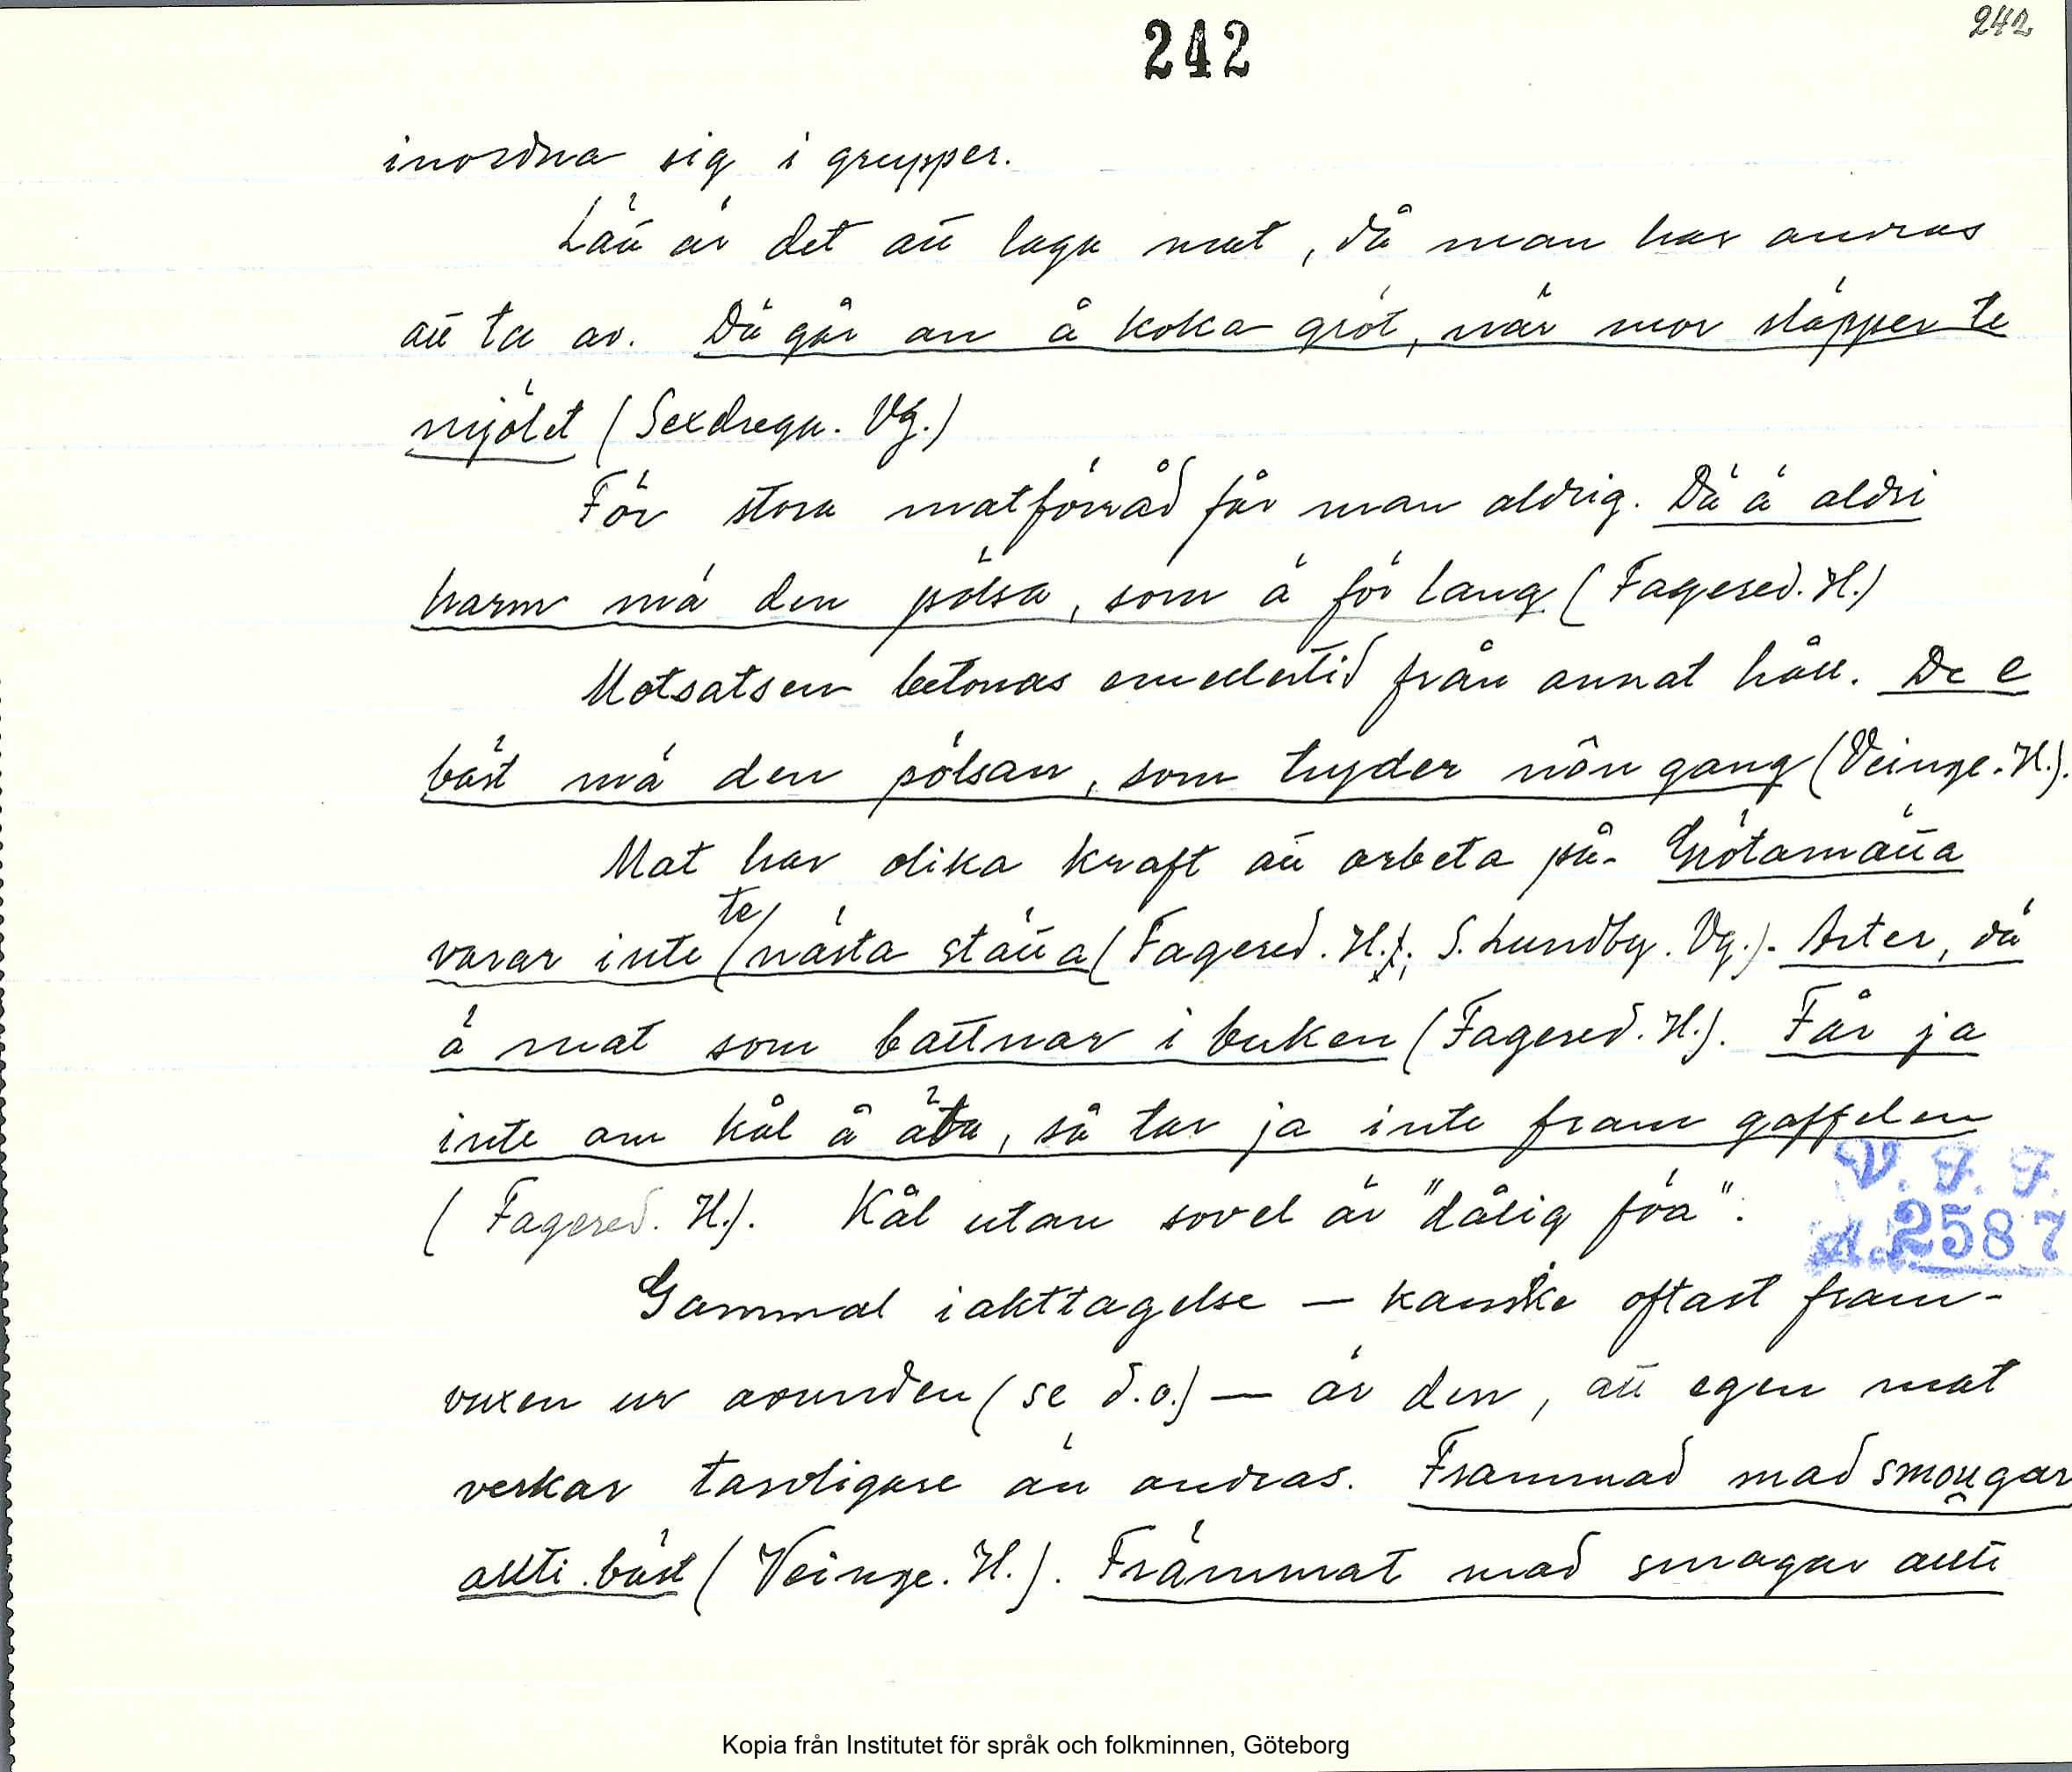 242
242
inordna sig i grupper.
Lätt är det att laga mat, då man har andras
att ta av. Dä går an å koka gröt, när mor släpper te
mjölet (Sexdrega. Vg.)
För stora matförråd får man aldrig. Dä ä aldri
harm mä den pölsa, som ä för lang (Fagered. H.)
Motsatsen betonas emellertid från annat håll. De e
bäst mä den pölsan, som tryder nôn gang (Veinge. H.).
Mat har olika kraft att arbeta på. Grötamätta
varar inte te nästa stätta (Fagered. H.; S. Lundby. Vg.). Arter, dä
ä mat som battnar i buken (Fagered. H.). Får ja
inte ann kål å äta, så tar ja inte fram gaffelen
(Fagered. H.). Kål utan sovel är "dålig föa".
V. F. F.
A. 2587
Gammal iakttagelse — kanske oftast fram-
vuxen ur avunden (se d.o.) — är den, att egen mat
verkar tarvligare än andras. Frammad mad smougar
allti bäst (Veinge. H.). Främmat mad smagar allti
Kopia från Institutet för språk och folkminnen, Göteborg